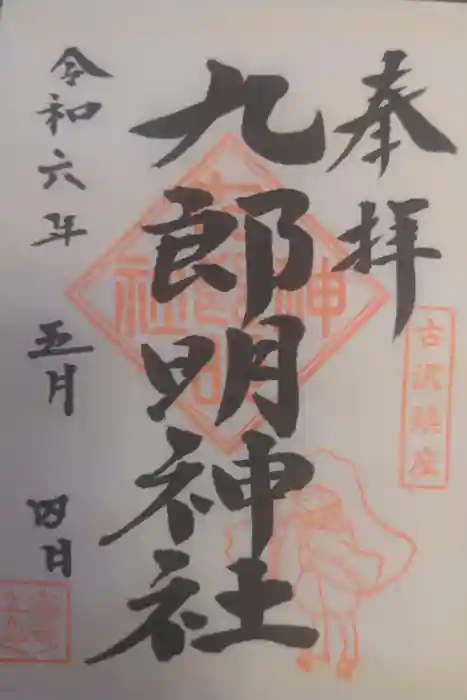 奉拝
古沢鎮座
九郎明神社
令和六年 五月 四日